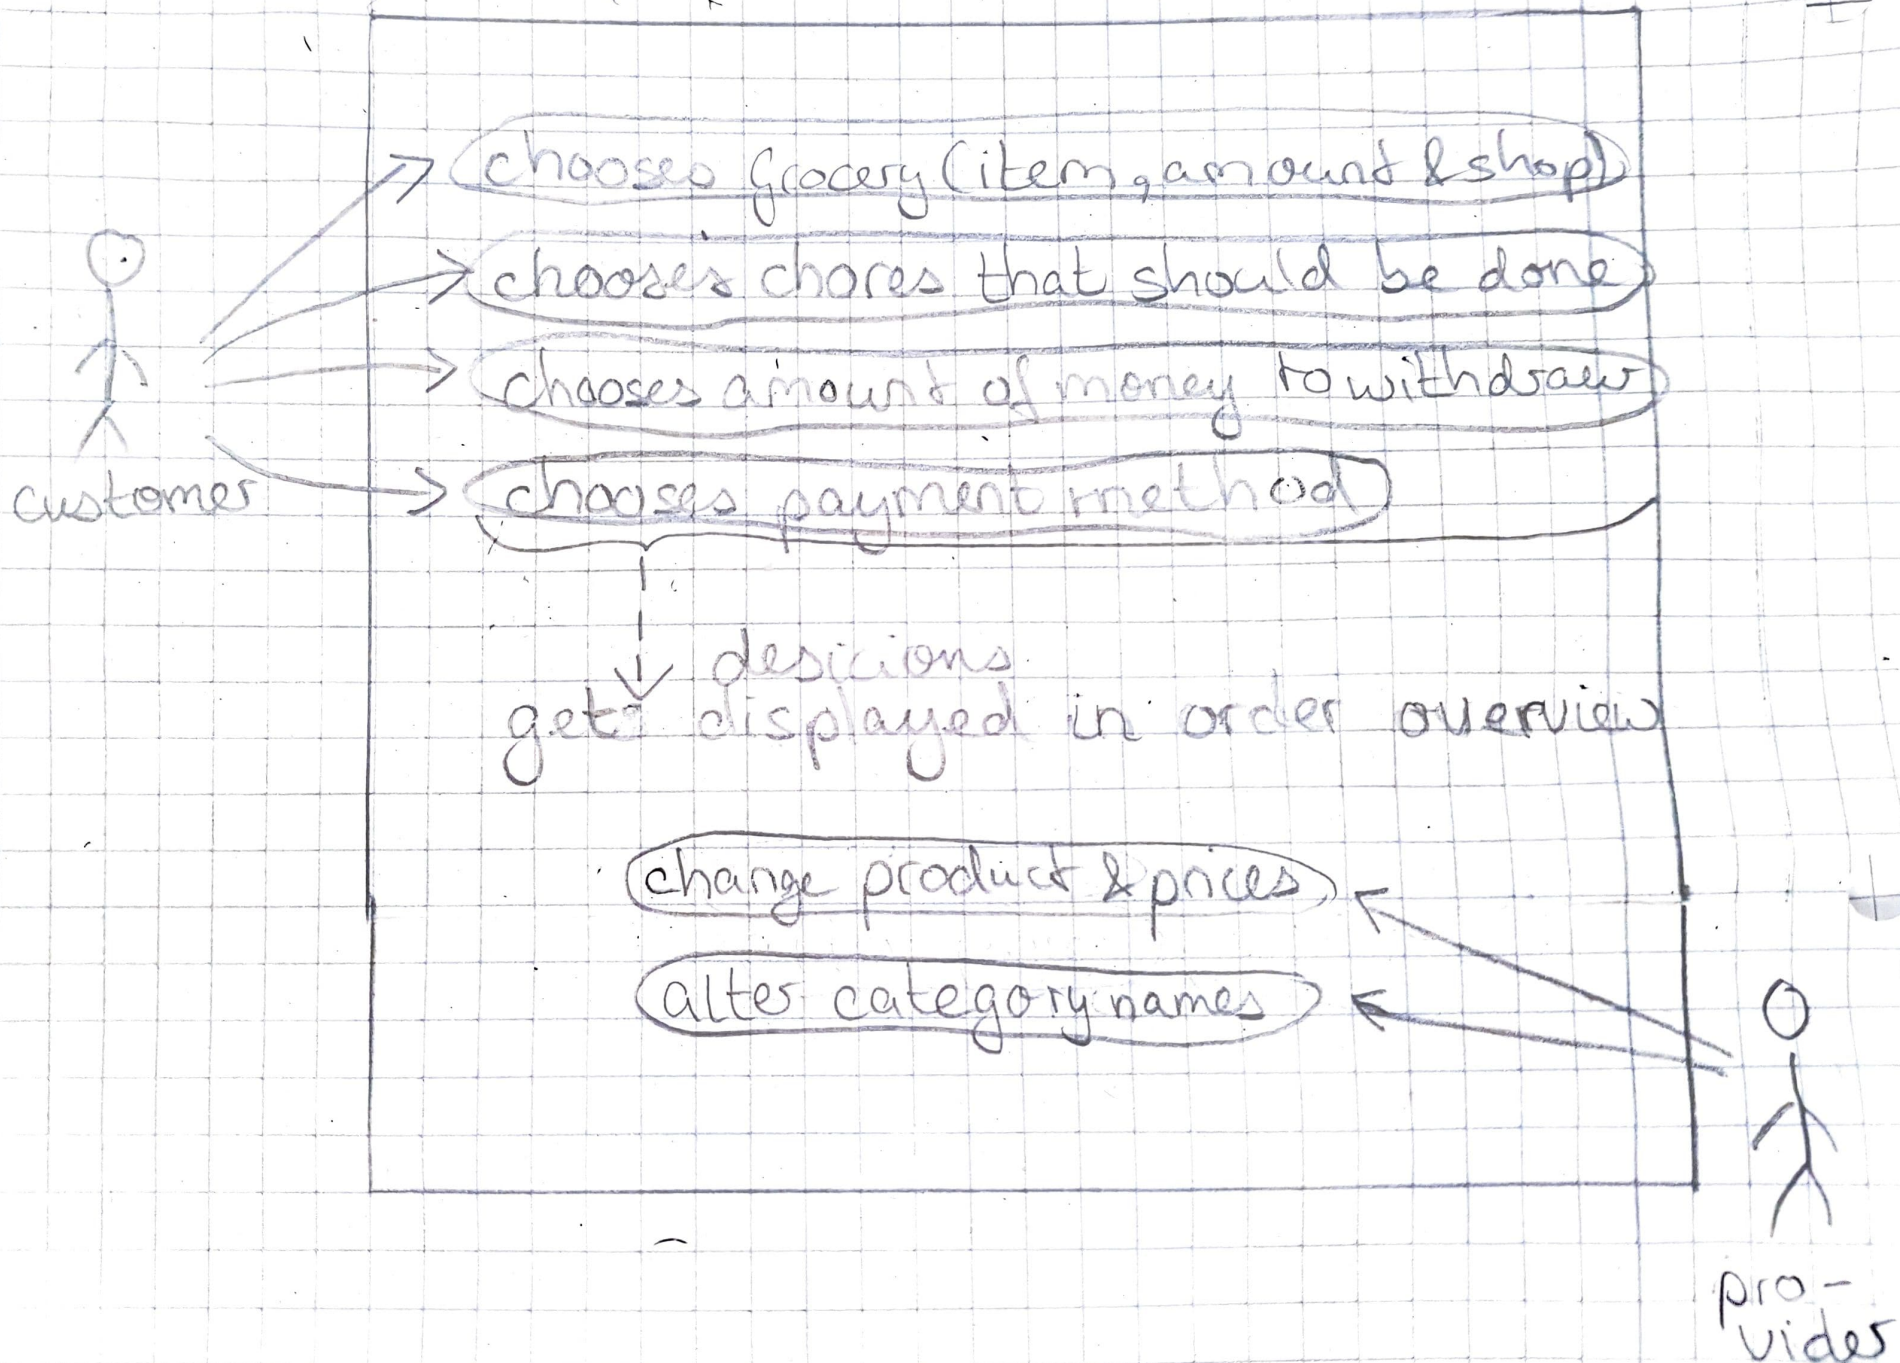 chooses Grocery (item, amount & shop)
chooses chores that should be done
chooses amount of money to withdraw
customer
chooses payment method
desicions
get displayed in order overview
change product & prices
alter category names
pro-
vider